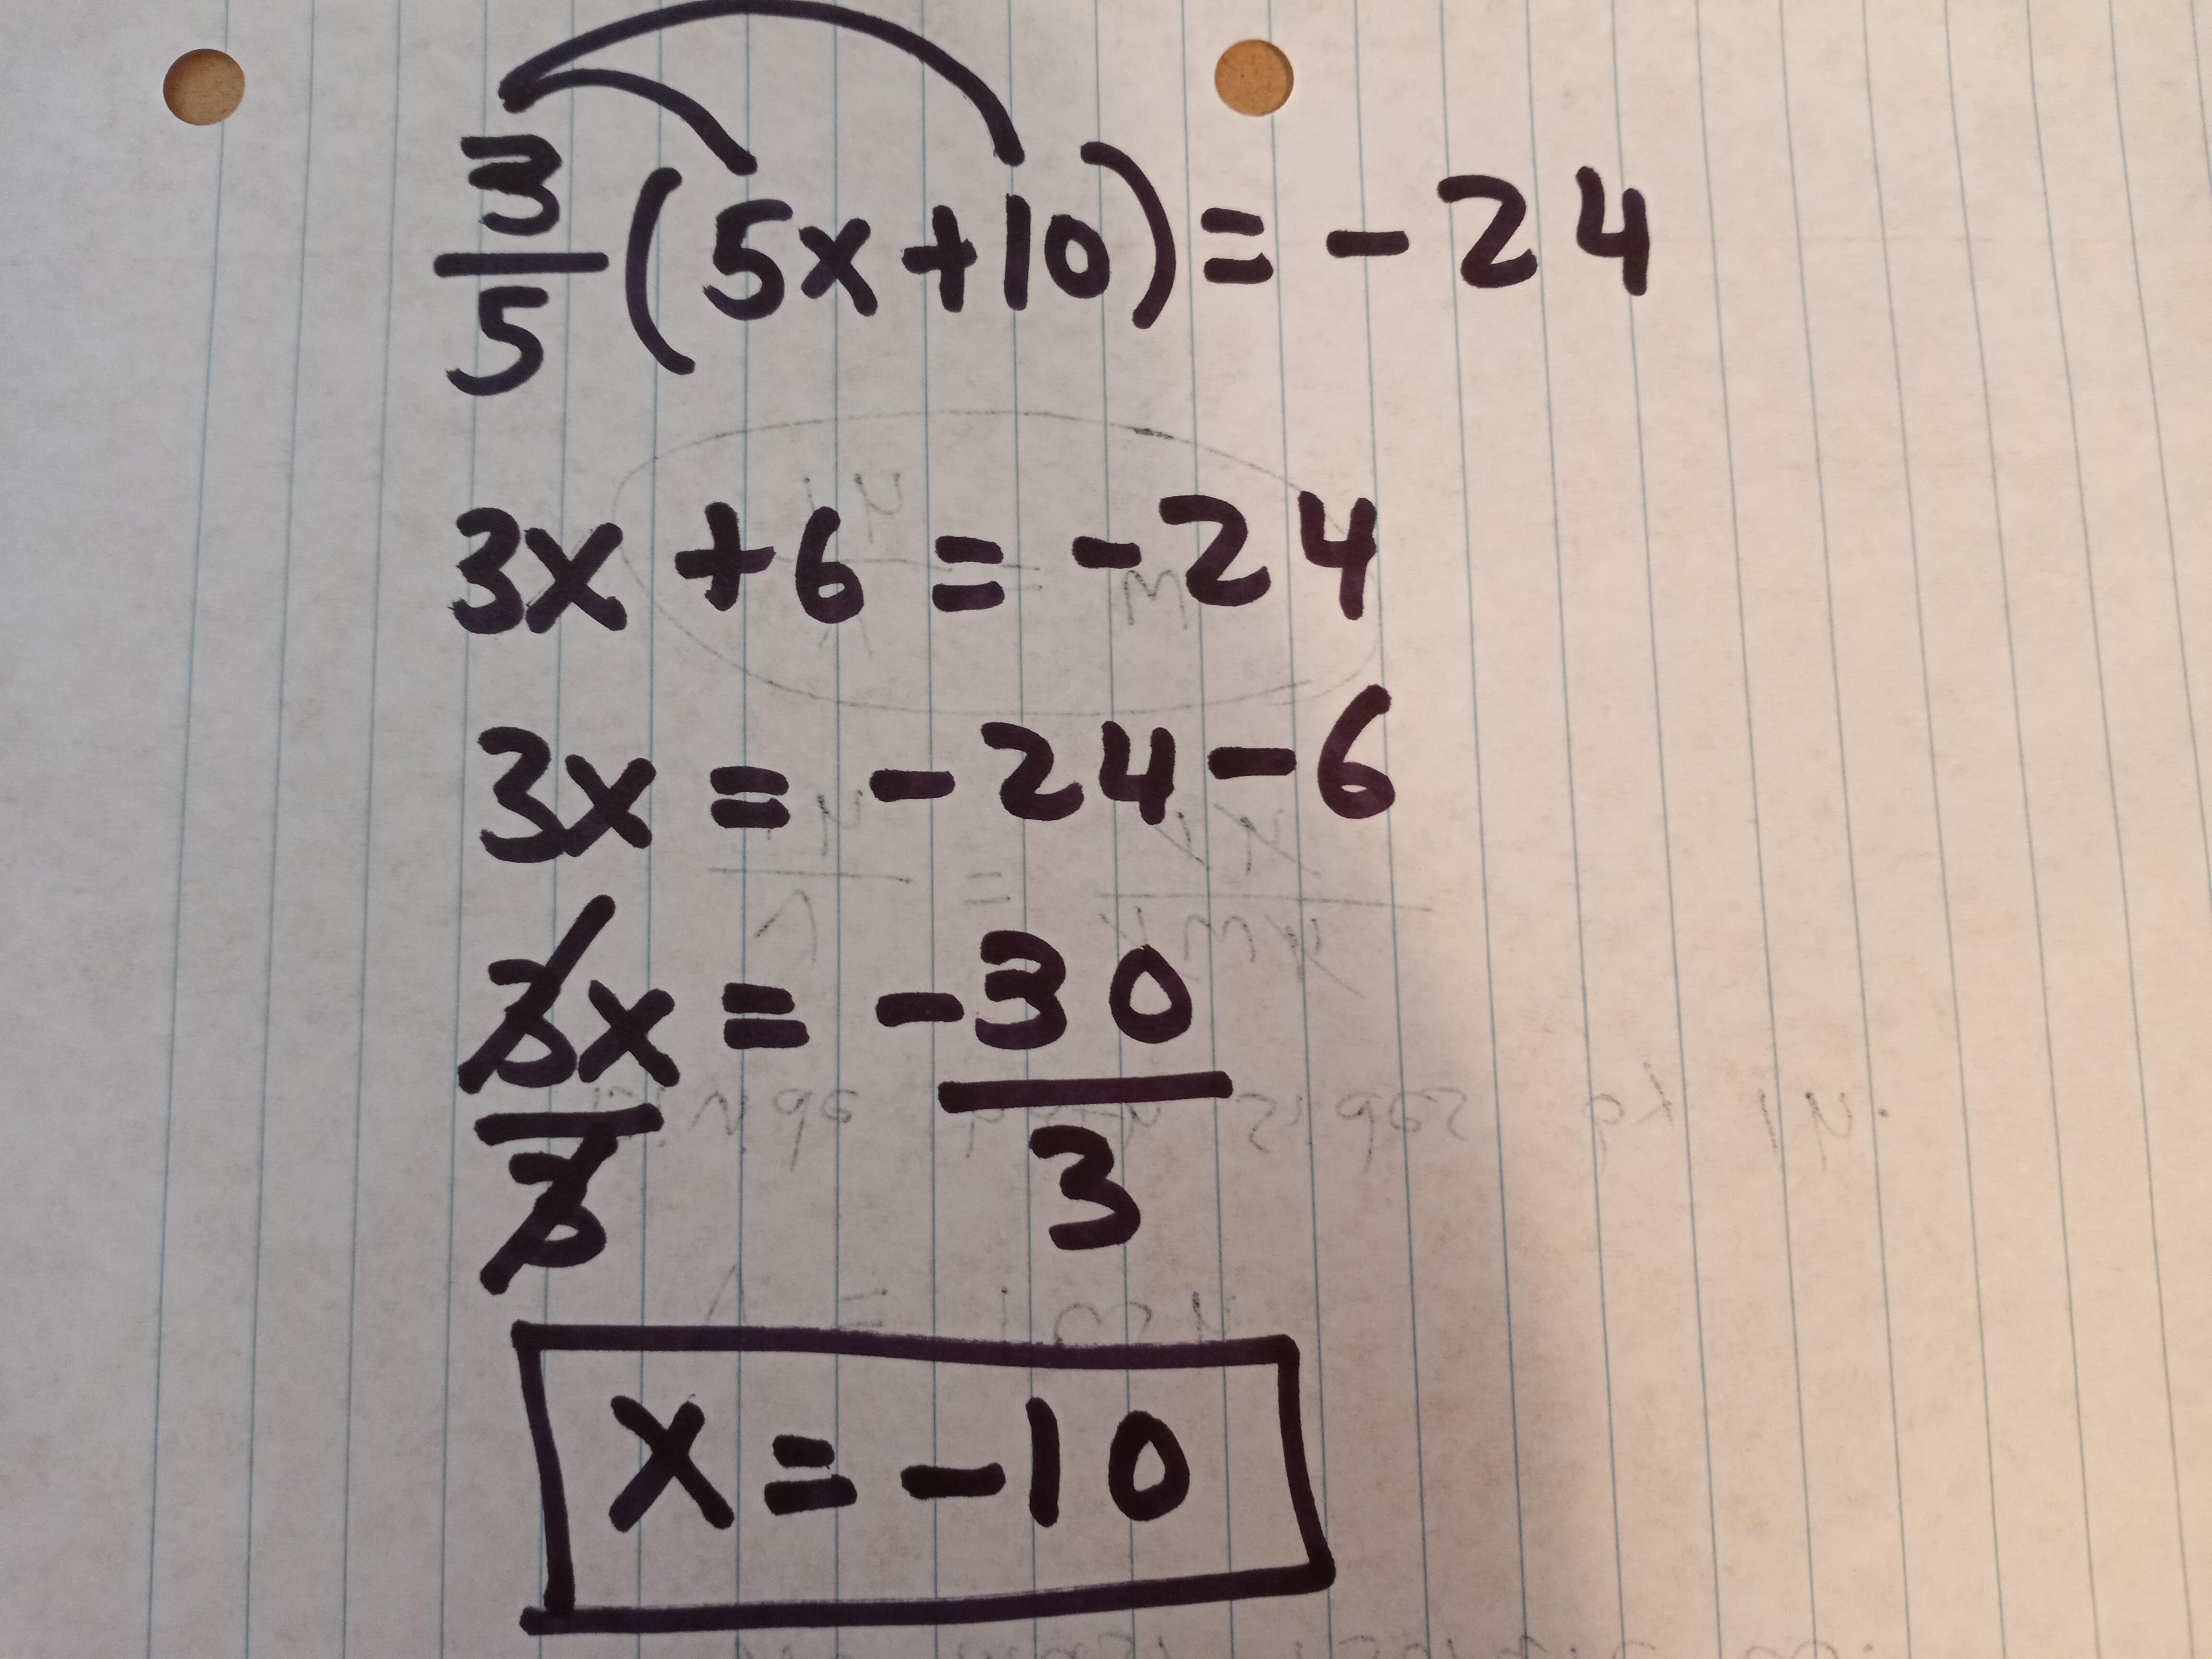 3/5 (5x+10) = -24
3x + 6 = -24
3x = -24 - 6
3x/3 = -30/3
x = -10